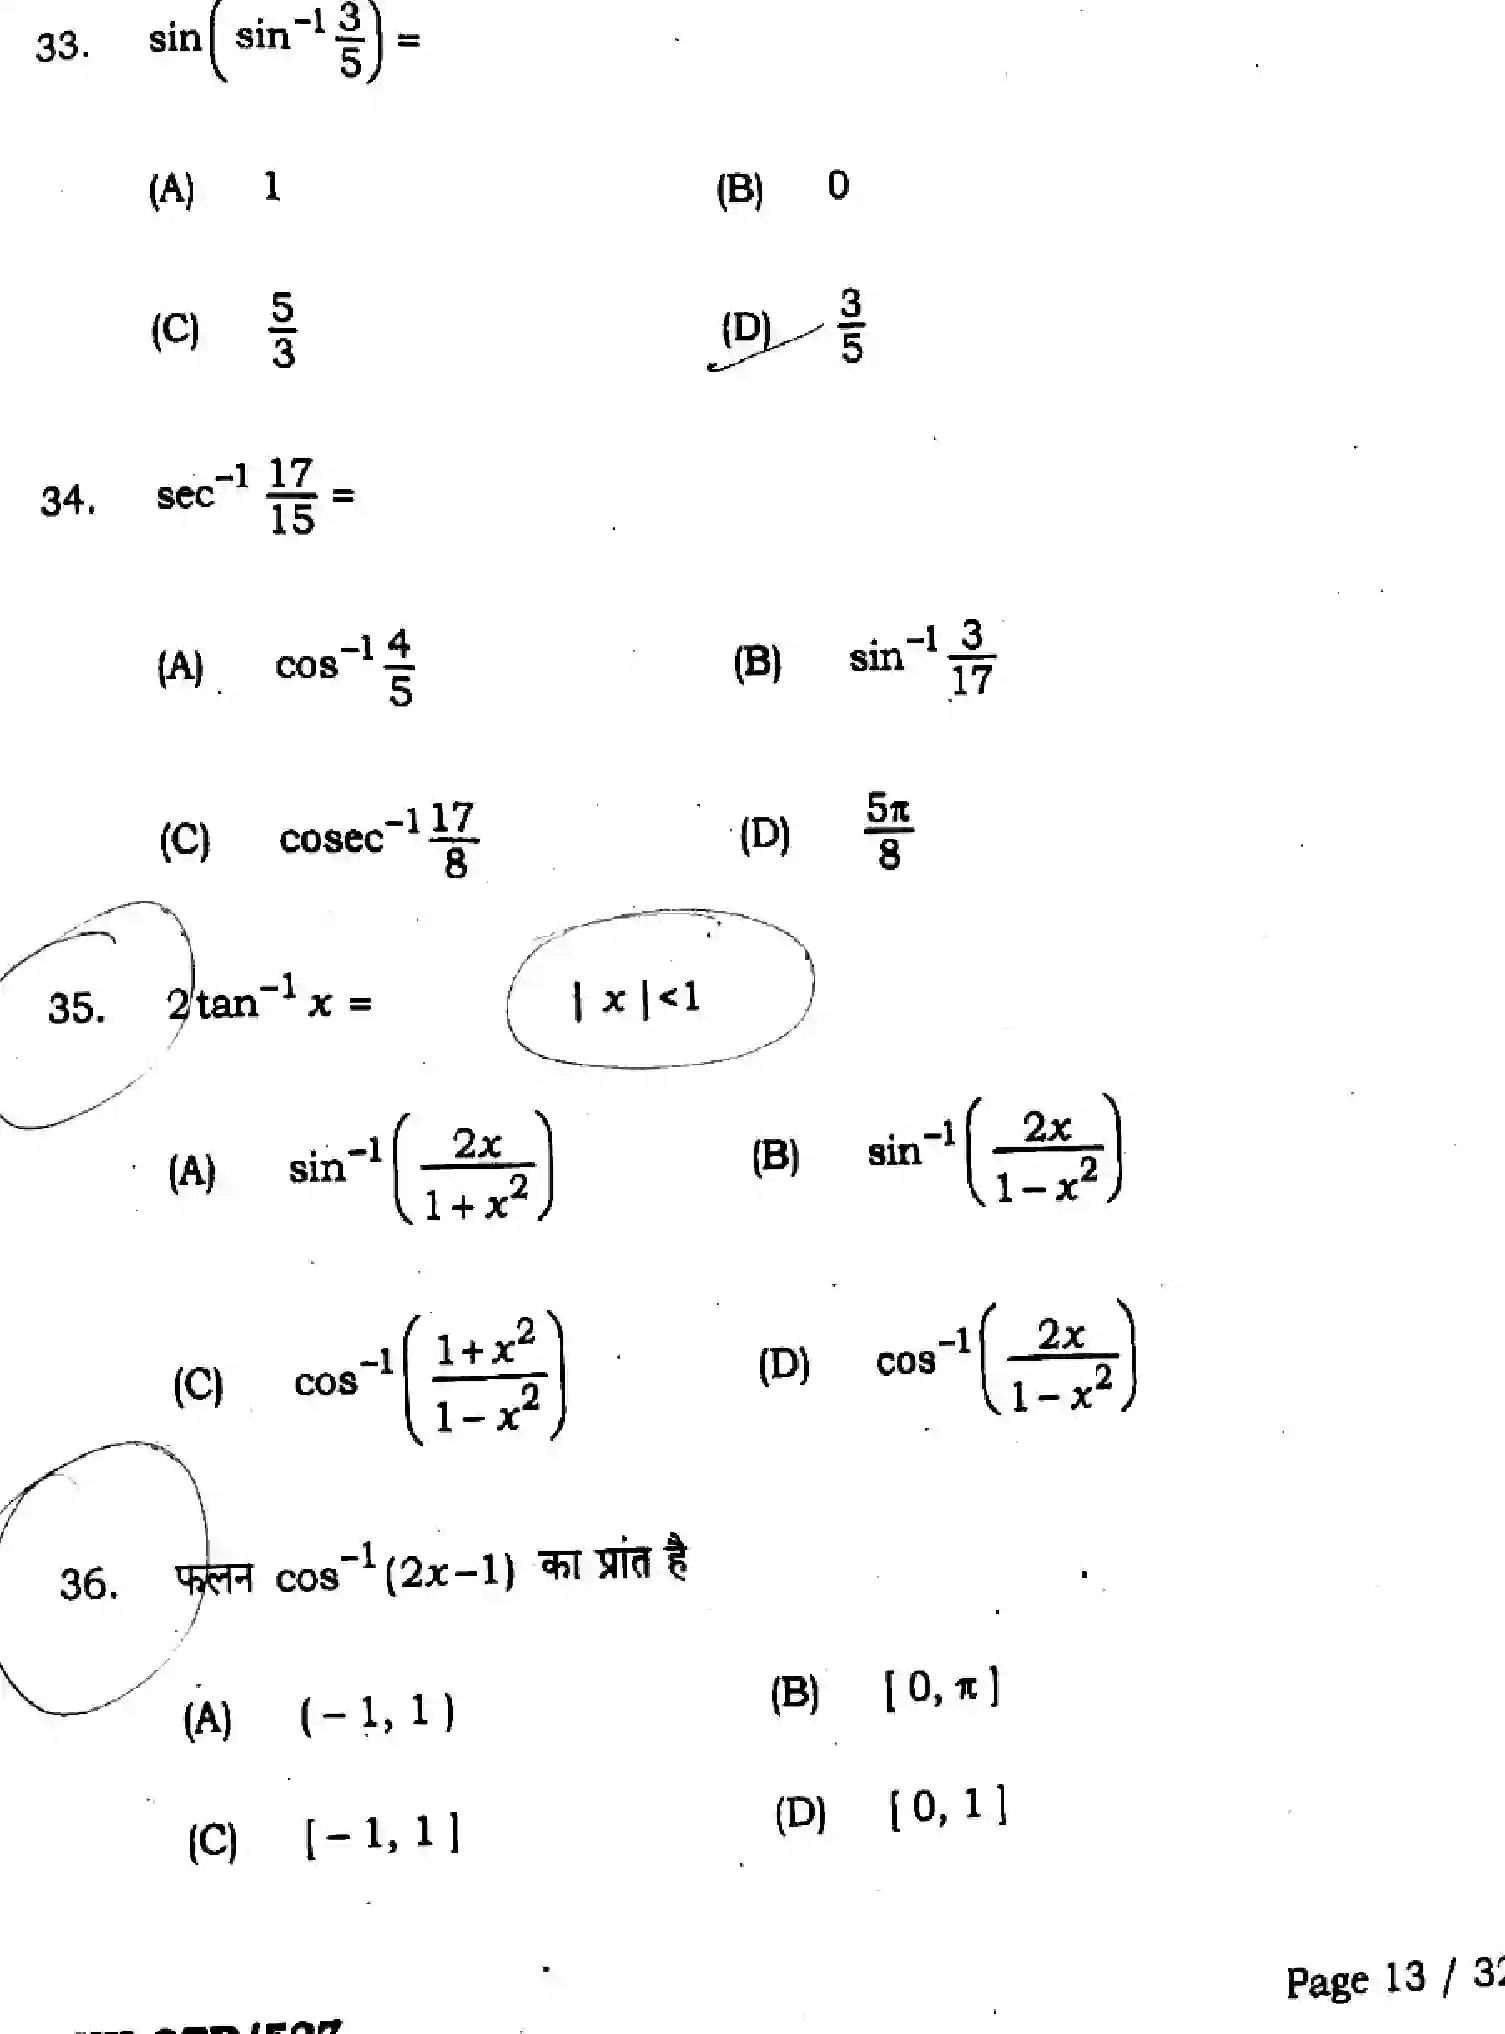 33. sin(sin⁻¹ 3/5) =
(A) 1 (B) 0
(C) 5/3 (D) 3/5
34. sec⁻¹ 17/15 =
(A) cos⁻¹ 4/5 (B) sin⁻¹ 3/17
(C) cosec⁻¹ 17/8 (D) 5π/8
35. 2tan⁻¹ x = | x |<1
(A) sin⁻¹(2x/(1+x²)) (B) sin⁻¹(2x/(1−x²))
(C) cos⁻¹((1+x²)/(1−x²)) (D) cos⁻¹(2x/(1−x²))
36. फलन cos⁻¹(2x−1) का प्रांत है
(A) (−1, 1) (B) [0, π]
(C) [−1, 1] (D) [0, 1]
Page 13 /